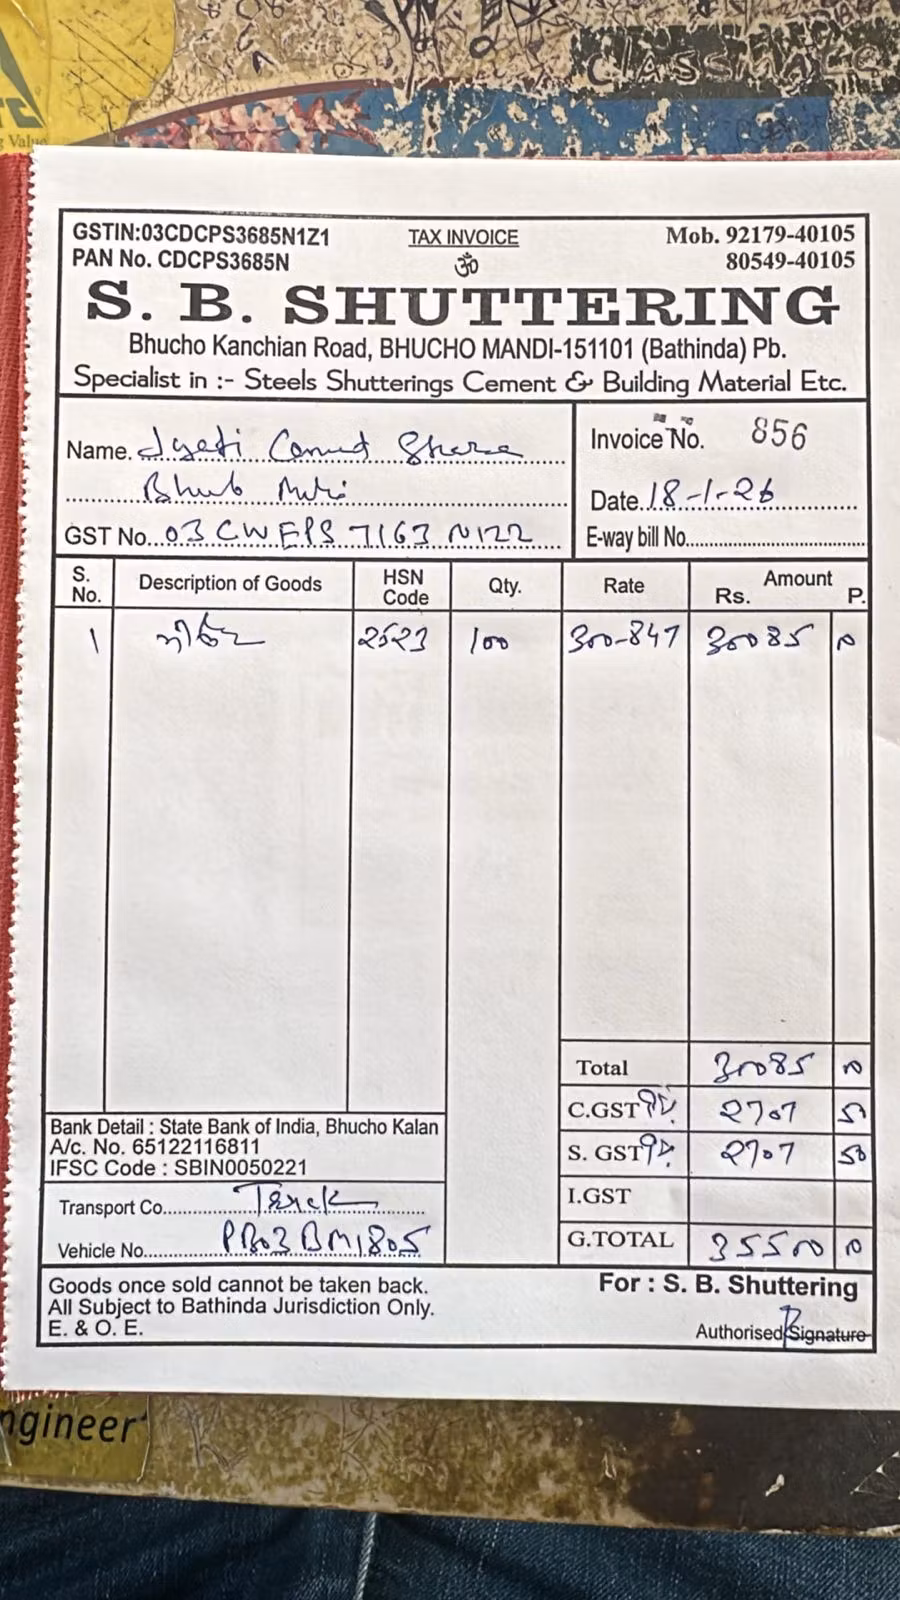 CLASSMATE
g Value
GSTIN:03CDCPS3685N1Z1 TAX INVOICE Mob. 92179-40105
PAN No. CDCPS3685N ॐ 80549-40105
S. B. SHUTTERING
Bhucho Kanchian Road, BHUCHO MANDI-151101 (Bathinda) Pb.
Specialist in :- Steels Shutterings Cement & Building Material Etc.
Name. Jyoti Cement Invoice No. 856
Date. 18-1-26
GST No. 03CWEPS7163N1ZZ E-way bill No.
S. No. Description of Goods HSN Code Qty. Rate Amount Rs. P.
1 2523 100 300-847 30085 00
Total 30085 00
C.GST 9% 2707 50
S. GST 9% 2707 50
I.GST
G.TOTAL 35500 00
Bank Detail : State Bank of India, Bhucho Kalan
A/c. No. 65122116811
IFSC Code : SBIN0050221
Transport Co. Truck
Vehicle No. PB03BM1805
Goods once sold cannot be taken back.
All Subject to Bathinda Jurisdiction Only.
E. & O. E.
For : S. B. Shuttering
Authorised Signature
ngineer